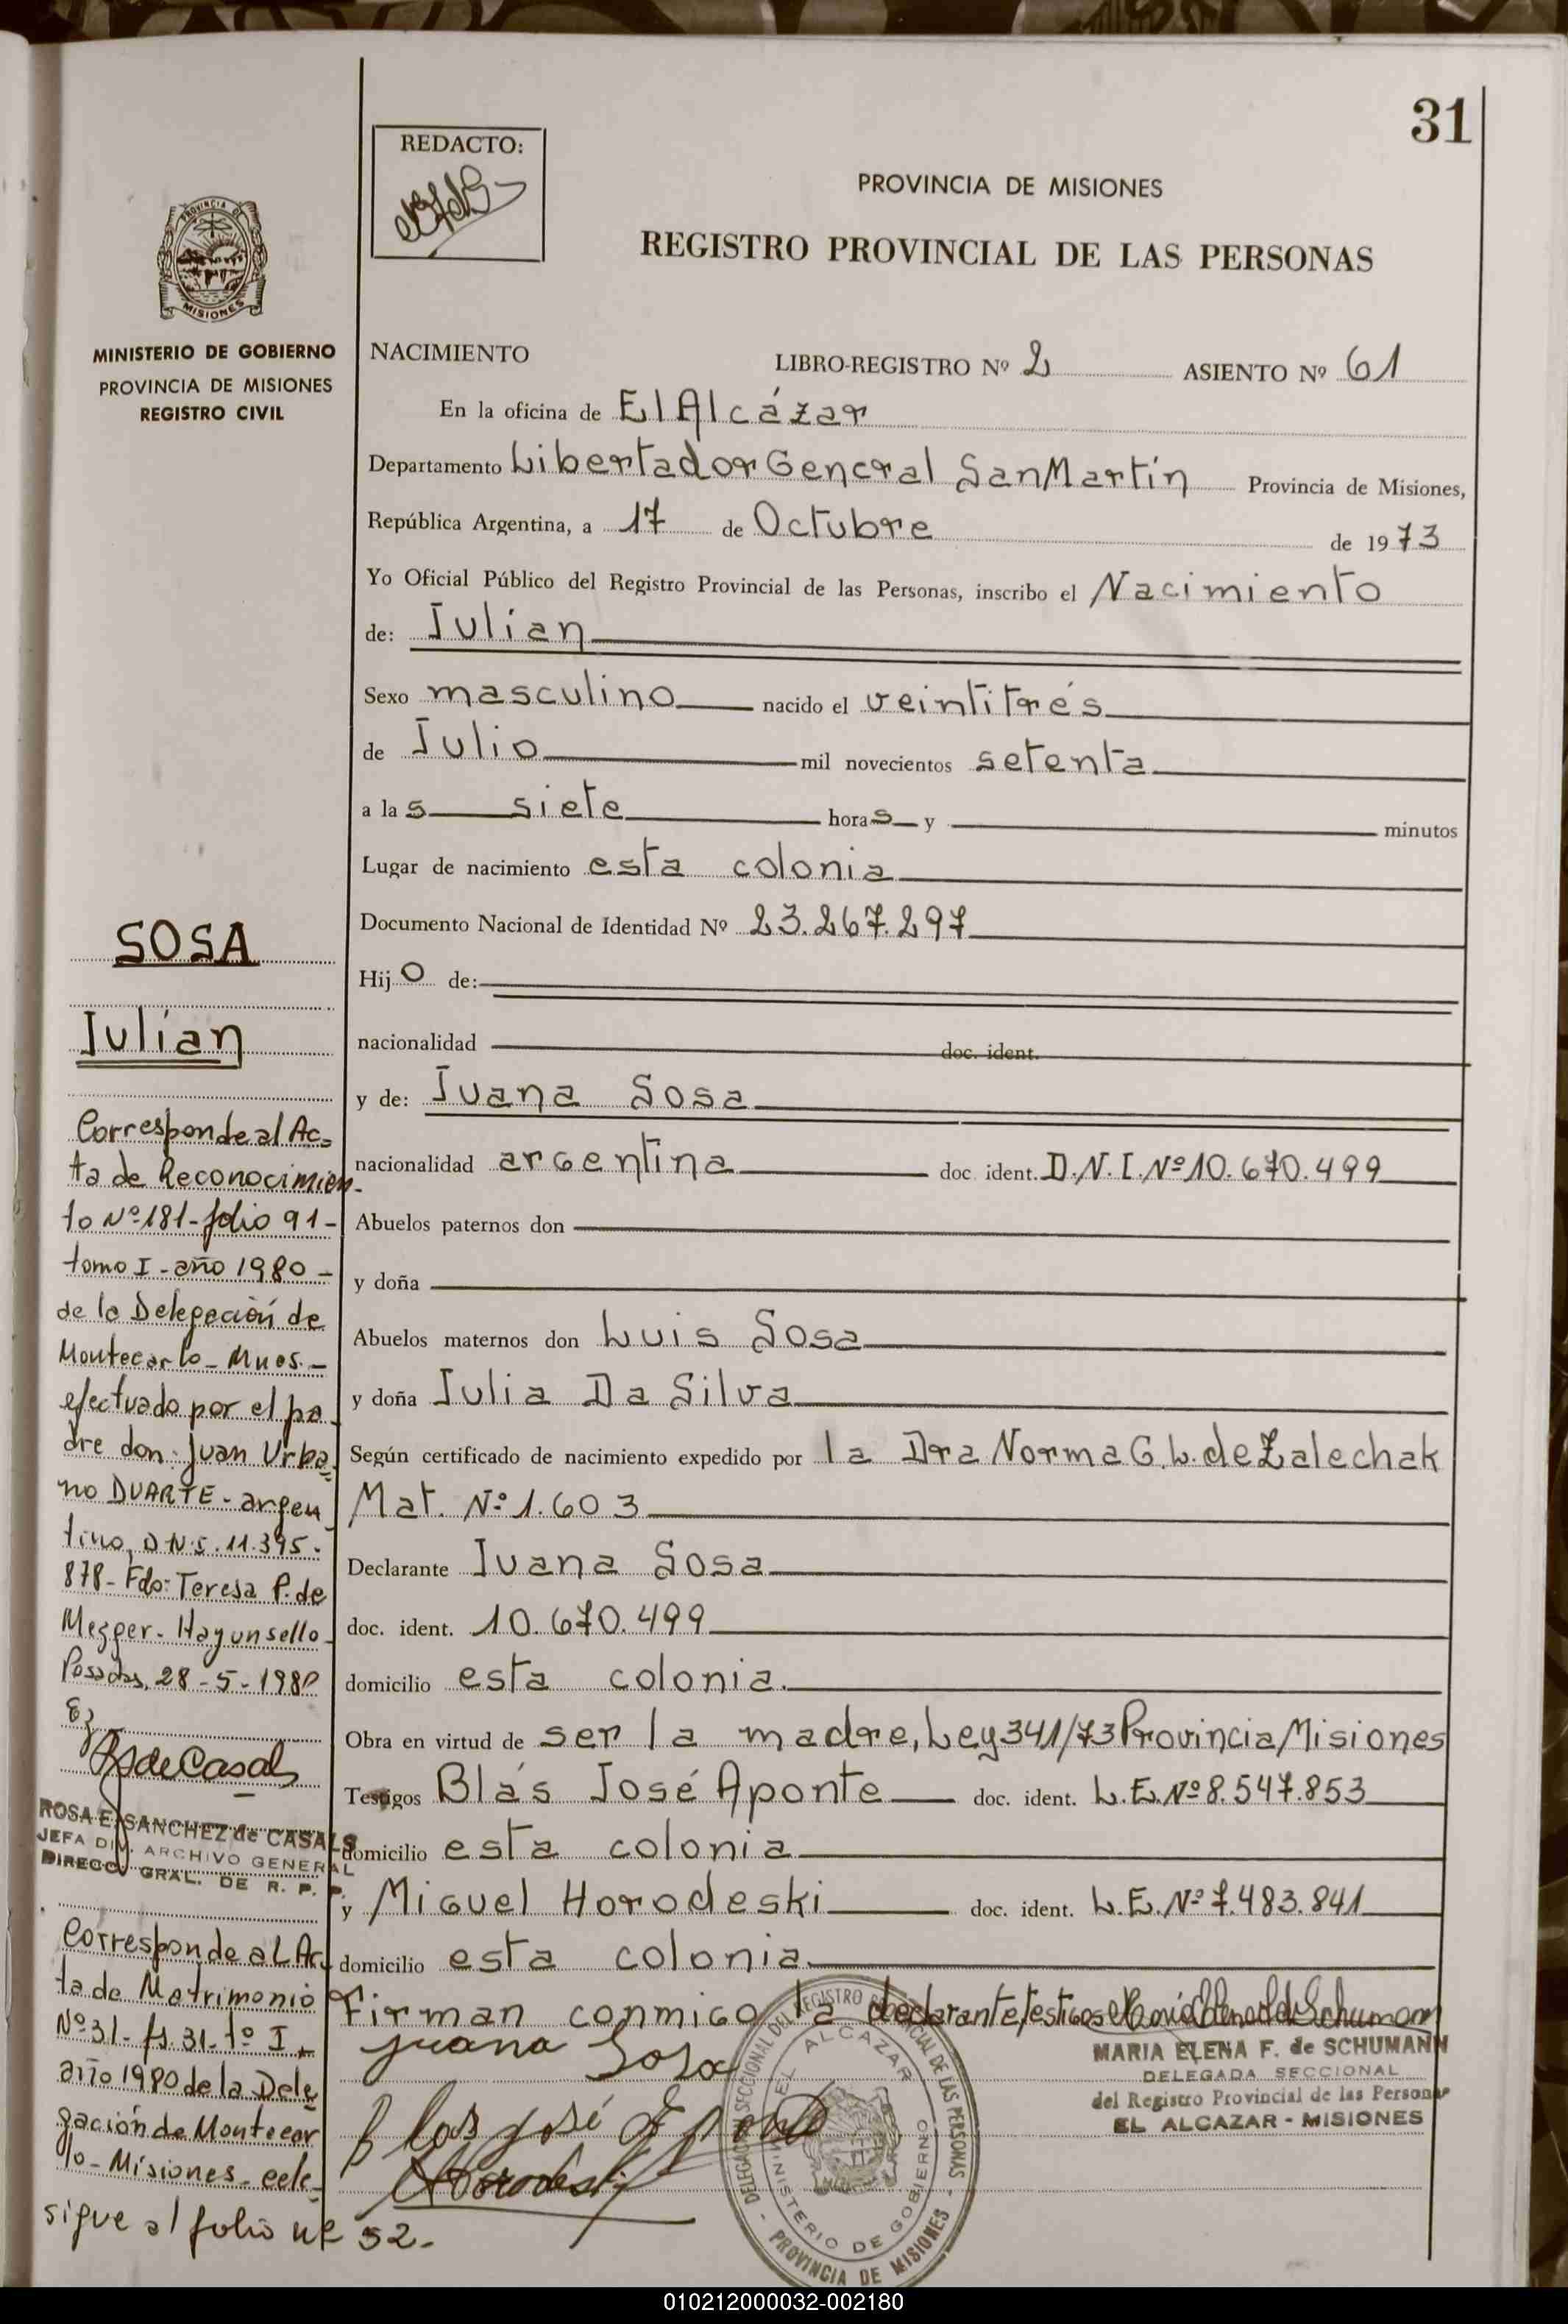 31
REDACTO:
PROVINCIA DE MISIONES
REGISTRO PROVINCIAL DE LAS PERSONAS
PROVINCIA DE
MISIONES
MINISTERIO DE GOBIERNO
PROVINCIA DE MISIONES
REGISTRO CIVIL
NACIMIENTO LIBRO-REGISTRO Nº 2 ASIENTO Nº 61
En la oficina de El Alcázar
Departamento Libertador General San Martín Provincia de Misiones,
República Argentina, a 17 de Octubre de 1973
Yo Oficial Público del Registro Provincial de las Personas, inscribo el Nacimiento
de: Julian
Sexo masculino nacido el veintitrés
de Julio mil novecientos setenta
a las siete horas y minutos
Lugar de nacimiento esta colonia
Documento Nacional de Identidad Nº 23.267.297
Hijo de:
nacionalidad doc. ident.
y de: Juana Sosa
nacionalidad argentina doc. ident. D.N.I. Nº 10.670.499
Abuelos paternos don
y doña
Abuelos maternos don Luis Sosa
y doña Julia Da Silva
Según certificado de nacimiento expedido por la Dra Norma G. L. de Zalechak
Mat. Nº 1.603
Declarante Juana Sosa
doc. ident. 10.670.499
domicilio esta colonia.
Obra en virtud de ser la madre, Ley 341/73 Provincia Misiones
Testigos Blás José Aponte doc. ident. L.E. Nº 8.547.853
domicilio esta colonia
y Miguel Horodeski doc. ident. L.E. Nº 7.483.841
domicilio esta colonia
Firman conmigo la declarante, testigos
Juana Sosa
Blas José Aponte
Horodeski
MARIA ELENA F. de SCHUMANN
DELEGADA SECCIONAL
del Registro Provincial de las Personas
EL ALCAZAR - MISIONES
DELEGACION SECCIONAL DEL REGISTRO PROVINCIAL DE LAS PERSONAS
- PROVINCIA DE MISIONES -
EL ALCAZAR
MINISTERIO DE GOBIERNO
SOSA
Julian
Corresponde al Ac=
ta de Reconocimien-
to Nº 181- folio 91-
tomo I - año 1980 -
de la Delegación de
Montecarlo - Mnes. -
efectuado por el pa-
dre don: Juan Urba-
no DUARTE - argen
tino, D.N.I. 11.395.
878 - Fdo: Teresa P. de
Mezger - Hay un sello -
Posadas, 28-5-1980
RSdeCasals
ROSA E. SANCHEZ de CASALS
JEFA DIV. ARCHIVO GENERAL
DIRECC. GRAL. DE R. P. P.
Corresponde al Ac-
ta de Matrimonio
Nº 31- fs. 31- tº I -
año 1980 de la Dele
gación de Montecar
lo - Misiones - cele-
sigue al folio nº 52.-
010212000032-002180